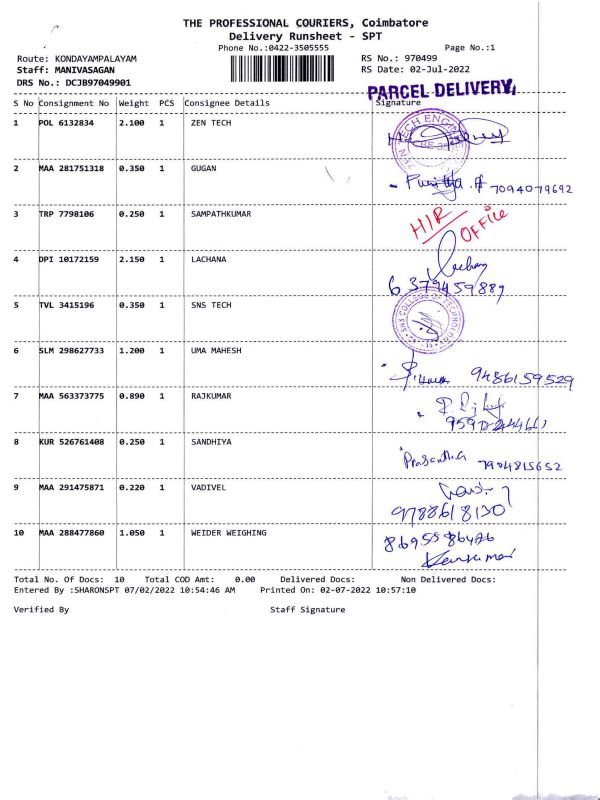 THE PROFESSIONAL COURIERS, Coimbatore
Delivery Runsheet - SPT
Phone No.:0422-3505555 Page No.:1
Route: KONDAYAMPALAYAM RS No.: 970499
Staff: MANIVASAGAN RS Date: 02-Jul-2022
DRS No.: DCJB97049901
PARCEL DELIVERY
S No Consignment No Weight PCS Consignee Details Signature
1 POL 6132834 2.100 1 ZEN TECH
ZEN TECH
2 MAA 281751318 0.350 1 GUGAN
7094079692
3 TRP 7798106 0.250 1 SAMPATHKUMAR
HIR OFFICE
4 DPI 10172159 2.150 1 LACHANA
6379459889
5 TVL 3415196 0.350 1 SNS TECH
SNS COLLEGE OF TECHNOLOGY
6 SLM 298627733 1.200 1 UMA MAHESH
9486159529
7 MAA 563373775 0.890 1 RAJKUMAR
8 KUR 526761408 0.250 1 SANDHIYA
Prasantha 7904815652
9 MAA 291475871 0.220 1 VADIVEL
9788618130
10 MAA 288477860 1.050 1 WEIDER WEIGHING
Total No. Of Docs: 10 Total COD Amt: 0.00 Delivered Docs: Non Delivered Docs:
Entered By :SHARONSPT 07/02/2022 10:54:46 AM Printed On: 02-07-2022 10:57:10
Verified By Staff Signature